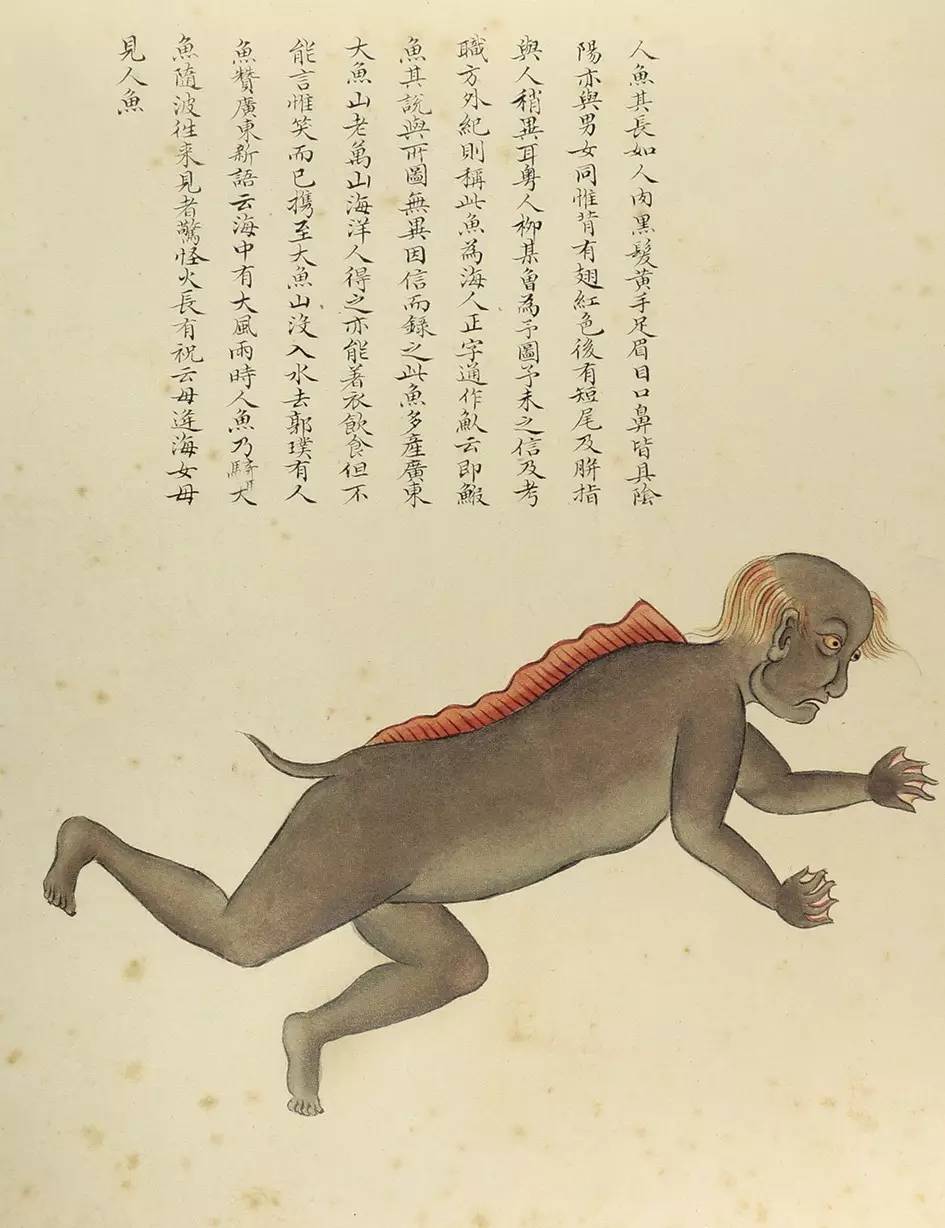 人魚其長如人肉黑髮黃手足眉目口鼻皆具陰
陽亦與男女同惟背有翅紅色後有短尾及胼指
與人稍異耳粵人柳某曾為予圖予未之信及考
職方外紀則稱此魚為海人正字通作魜云即鰕
魚其說與所圖無異因信而錄之此魚多產廣東
大魚山老萬山海洋人得之亦能著衣飲食但不
能言惟笑而已携至大魚山沒入水去郭璞有人
魚贊廣東新語云海中有大風雨時人魚乃騎大
魚隨波往来見者驚怪火長有祝云毋逢海女毋
見人魚